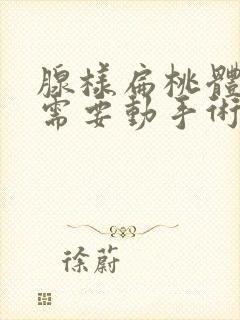 腺樣扁桃體
需要動手術
徐蔚